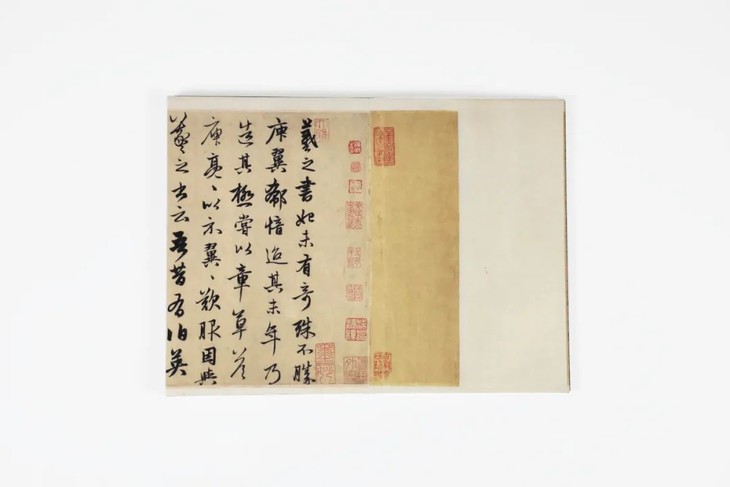 羲之書始未有奇殊不勝
庾翼郗愔迨其末年乃
造其極嘗以章草答
庾亮〻以示翼〻歎服因與
羲之書云吾昔有伯英